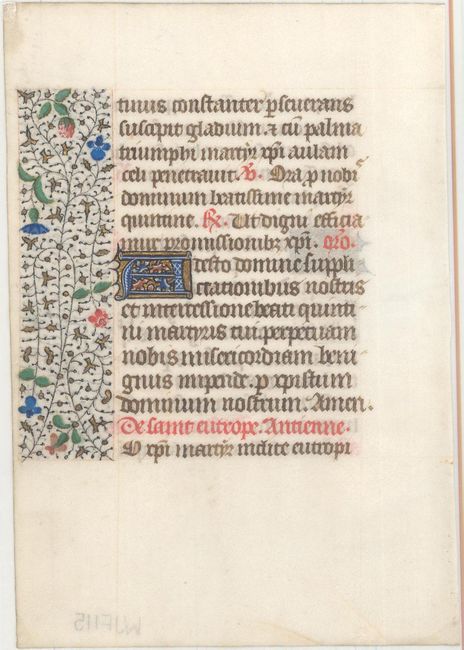 tinus constanter pseuerans
suscepit gladium. ⁊ cũ palma
triumphi martyr xpi aulam
celi penetrauit. ℣. Ora p nobis
dominum beatissime martyr
quintine. ℟. Ut digni efficia
mur promissionibꝫ xpi. oro.
Adesto domine suppli
cationibus nostris
et intercessione beati quinti
ni martyris tui perpetuam
nobis misericordiam beni
gnus impende. p xpistum
dominum nostrum. Amen.
De saint eutrope. Antienne.
O xpi martyr inclite eutropi
WJF115